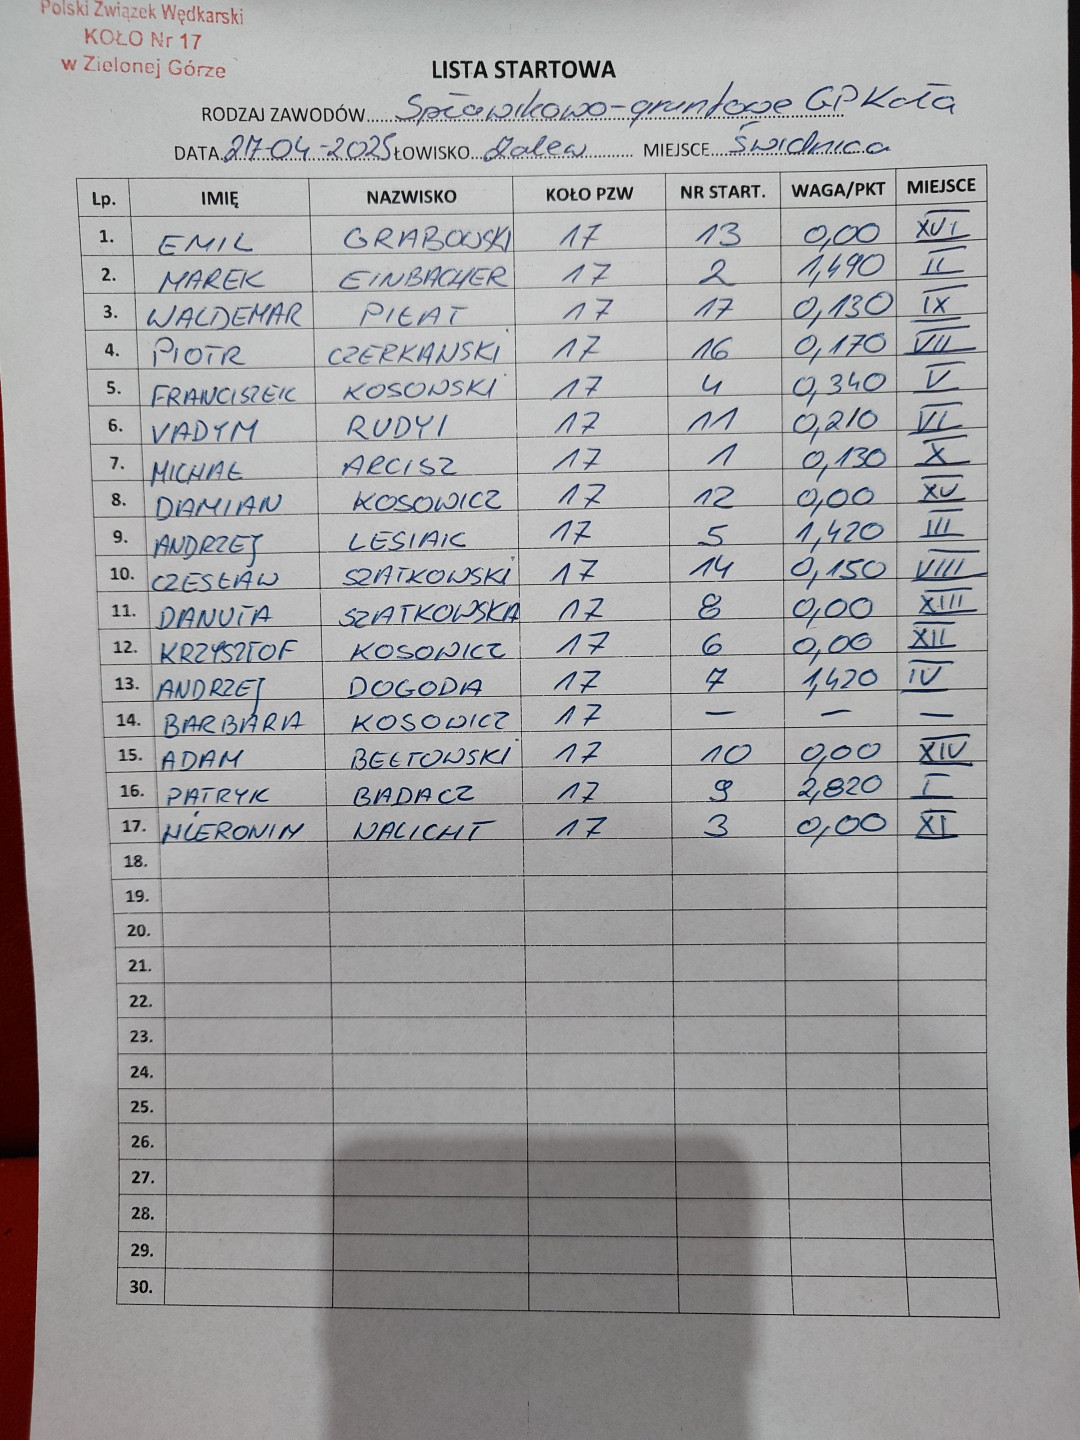 Polski Związek Wędkarski
KOŁO Nr 17
w Zielonej Górze
LISTA STARTOWA
RODZAJ ZAWODÓW Spławikowo-gruntowe GP Koła
DATA 27-04-2025 ŁOWISKO Zalew MIEJSCE Świdnica
Lp. IMIĘ NAZWISKO KOŁO PZW NR START. WAGA/PKT MIEJSCE
1. EMIL GRABOWSKI 17 13 0,00 XVI
2. MAREK EINBACHER 17 2 1,490 II
3. WALDEMAR PIŁAT 17 17 0,130 IX
4. PIOTR CZERKAŃSKI 17 16 0,170 VII
5. FRANCISZEK KOSOWSKI 17 4 0,340 V
6. VADYM RUDYI 17 11 0,210 VI
7. MICHAŁ ARCISZ 17 1 0,130 X
8. DAMIAN KOSOWICZ 17 12 0,00 XV
9. ANDRZEJ LESIAK 17 5 1,420 III
10. CZESŁAW SZATKOWSKI 17 14 0,150 VIII
11. DANUTA SZATKOWSKA 17 8 0,00 XIII
12. KRZYSZTOF KOSOWICZ 17 6 0,00 XII
13. ANDRZEJ DOGODA 17 7 1,420 IV
14. BARBARA KOSOWICZ 17 — — —
15. ADAM BEŁTOWSKI 17 10 0,00 XIV
16. PATRYK BADACZ 17 9 2,820 I
17. HIERONIM NALICHT 17 3 0,00 XI
18.
19.
20.
21.
22.
23.
24.
25.
26.
27.
28.
29.
30.